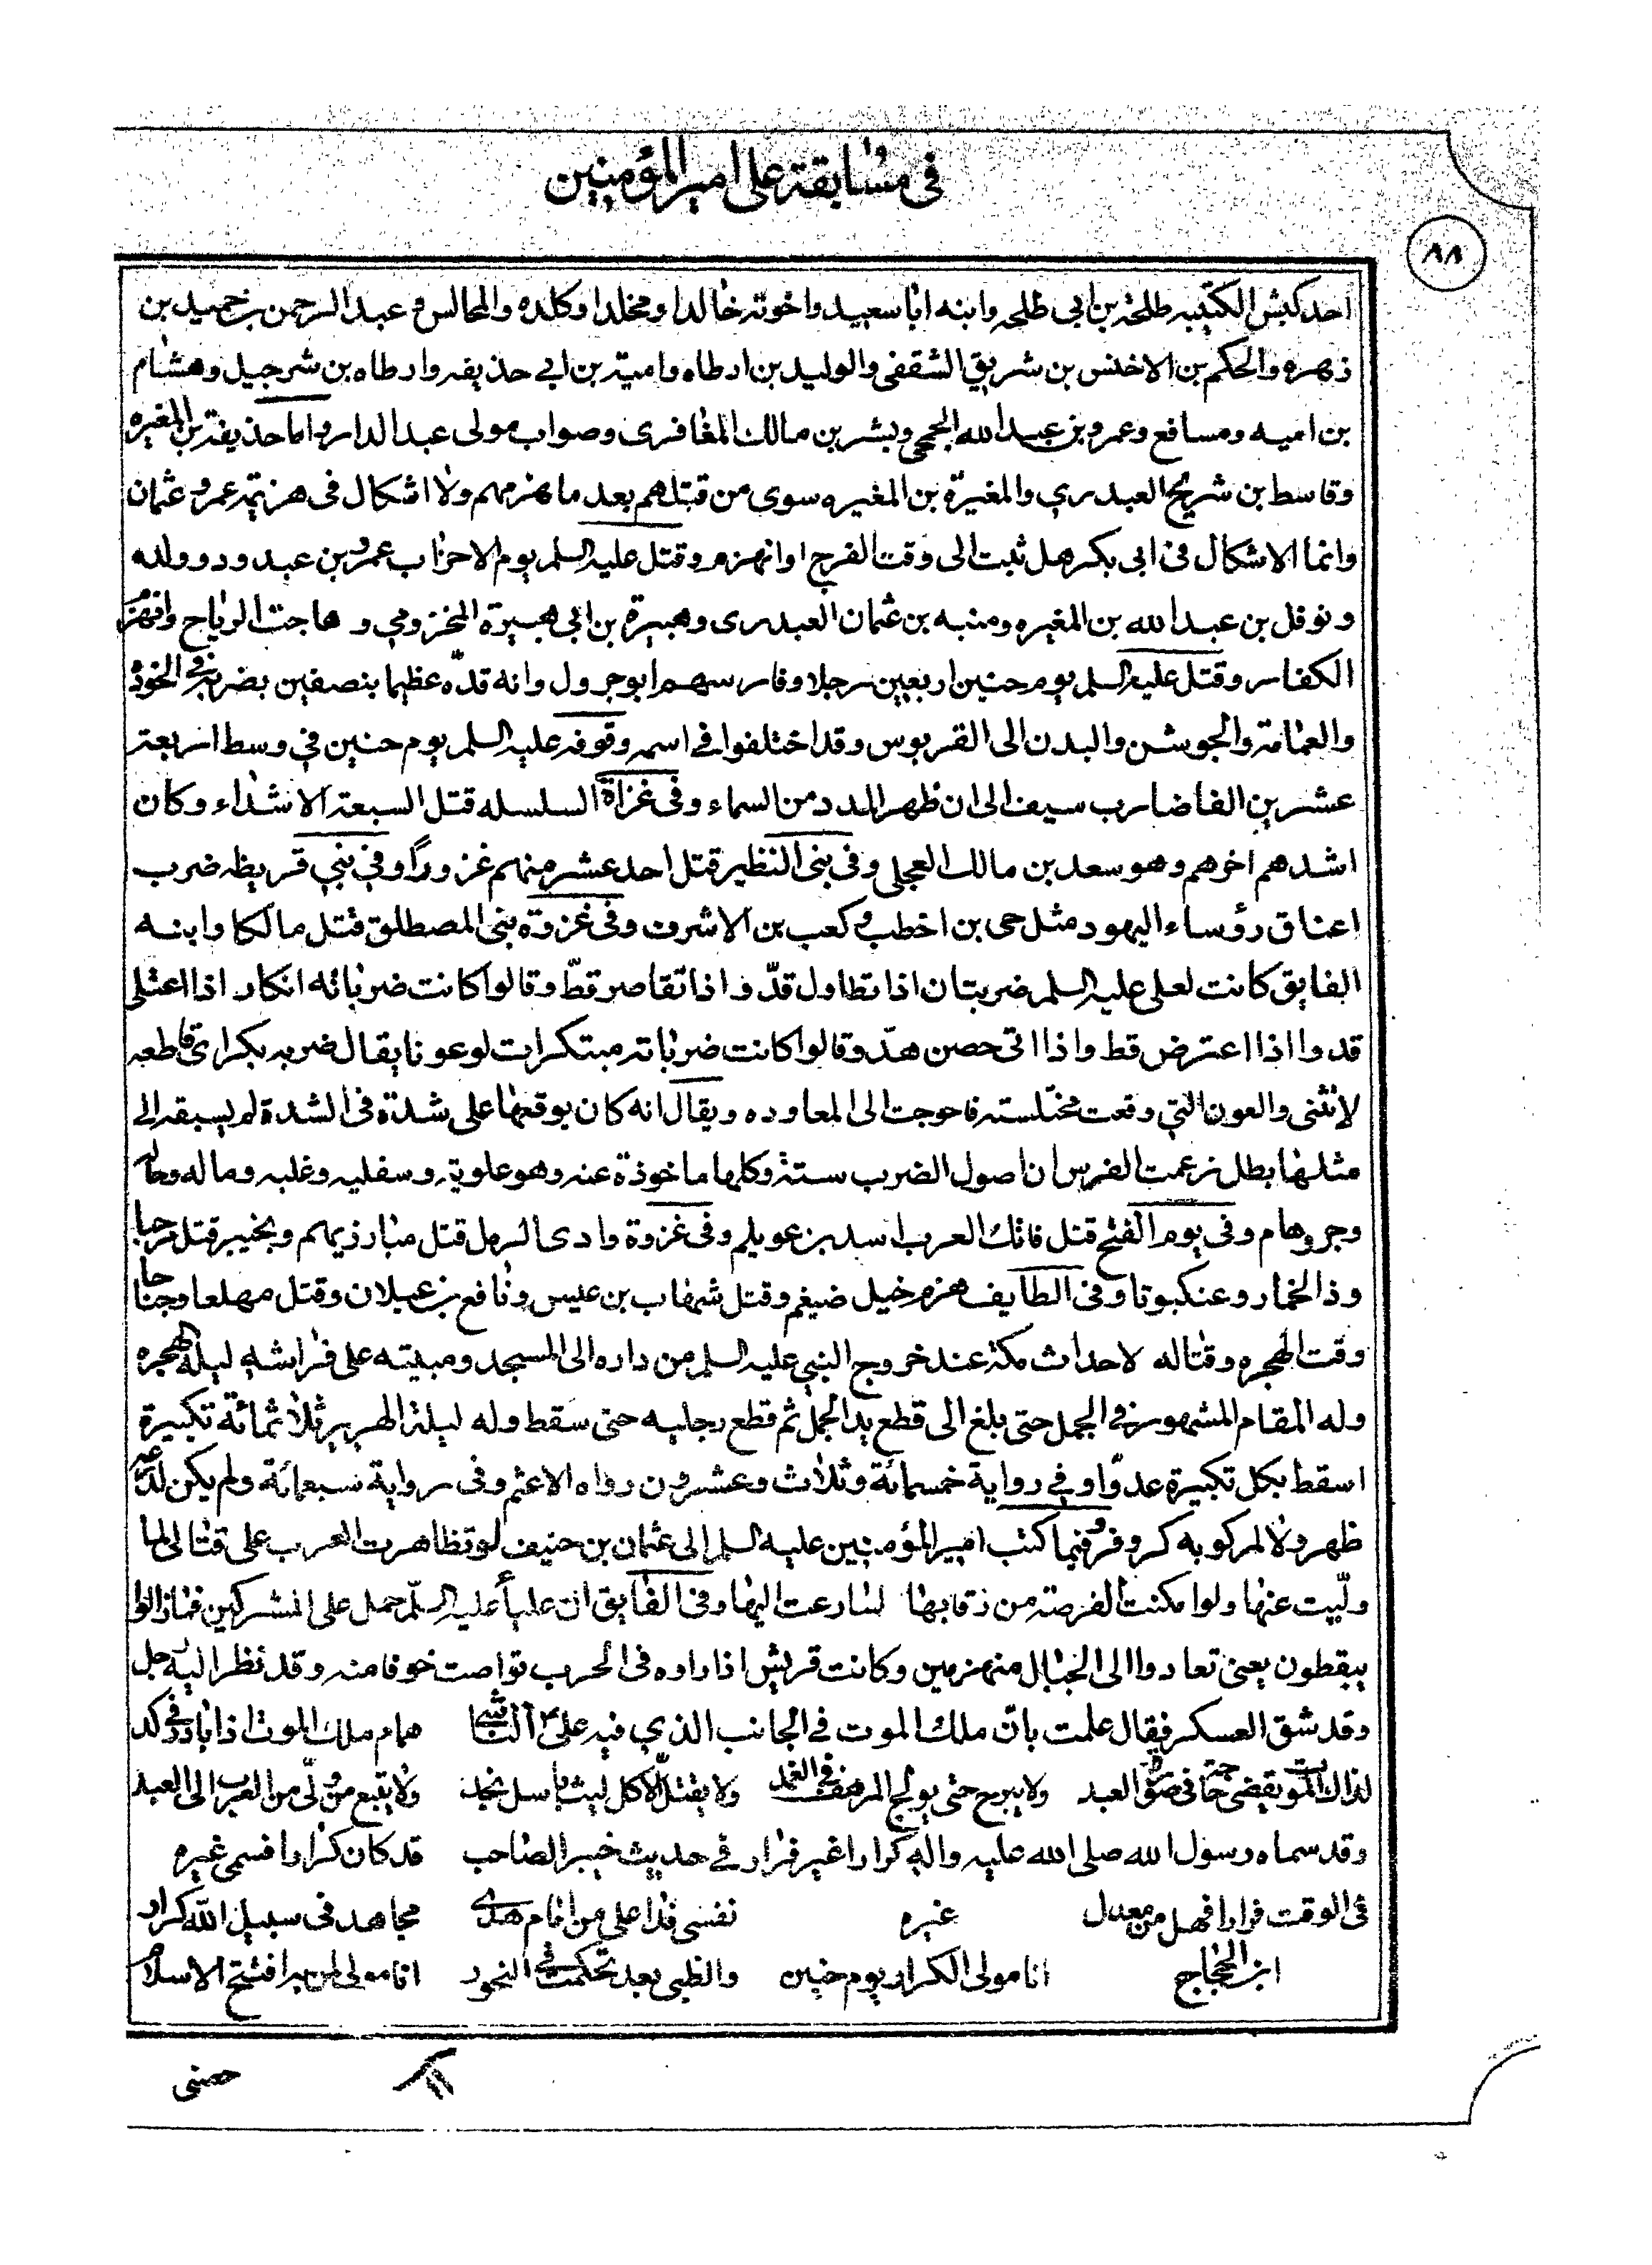 في مسابقة علي امير المؤمنين
٨٨
احد كبش الكتيبه طلحة بن ابي طلحه وابنه ابا سعيد واخوته خالدا ومخلدا وكلده والمحالس و عبد الرحمن بن حميد بن
زهره والحكم بن الاخنس بن شريق الثقفي والوليد بن ارطاه وامية بن ابي حذيفه وارطاه بن شرجيل وهشام
بن اميه ومسافع وعمرو بن عبد الله الجمحي وبشر بن مالك المغافري وصواب مولى عبد الدار واما حذيفة بن المغيره
وقاسط بن شريح العبدري والمغيرة بن المغيره سوى من قتلهم بعد ما هزمهم ولا اشكال في هزيمة عمر و عثمان
وانما الاشكال في ابي بكر هل ثبت الى وقت الفرج او انهزم وقتل عليه السلم يوم الاحزاب عمرو بن عبد ود وولده
ونوفل بن عبد الله بن المغيره ومنبه بن عثمان العبدري وهبيرة بن ابي هبيرة المخزومي و هاجت الرياح وانهزم
الكفار وقتل عليه السلم يوم حنين اربعين رجلا وفارسهم ابو جرول وانه قدّه عظيما بنصفين بضربة في الخوذ
والعمامة والجوشن والبدن الى القربوس وقد اختلفوا في اسمه وقوفه عليه السلم يوم حنين في وسط اربعة
عشرين الف ضارب سيف الى ان ظهر المدد من السماء وفي غزاة السلسله قتل السبعة الاشداء وكان
اشدهم اخرهم وهو سعد بن مالك العجلي وفي بني النظير قتل احد عشر منهم غزورًا وفي بني قريظه ضرب
اعناق رؤساء اليهود مثل حي بن اخطب وكعب بن الاشرف وفي غزوة بني المصطلق قتل مالكا وابنه
الفايق كانت لعلي عليه السلم ضربتان اذا تطاول قدّ واذا تقاصر قطّ وقالوا كانت ضرباته ابكار اذا اعتلى
قد واذا اعترض قط واذا اتى حصن هدّ وقالوا كانت ضرباته مبتكرات لوعونا يقال ضربه بكر اي قاطعه
لا تثنى والعون التي وقعت مختلسته فاحوجت الى المعاوده ويقال انه كان يوقعها على شدة في الشدة لم يسبقه الى
مثلها بطل زعمت الفرس ان اصول الضرب ستة وكلها ماخوذة عنه وهو علوية وسفليه وغلبه وماله وحاله
وجروهام وفي يوم الفتح قتل فاتك العرب اسد بن عويلم وفي غزوة وادي الرمل قتل مبارزيهم وبخيبر قتل مرحبا
وذا الخمار وعنكبوتا وفي الطايف هزم خيل ضيغم وقتل شهاب بن عيس ونافع بن عيلان وقتل مهلعا وجناحا
وقت الهجره وقتاله لاحداث مكة عند خروج النبي عليه السلم من داره الى المسجد ومبيته على فراشه ليلة الهجره
وله المقام المشهور في الجمل حتى بلغ الى قطع يد الجمل ثم قطع رجليه حتى سقط وله ليلة الهرير ثلاثمائة تكبيرة
اسقط بكل تكبيرة عدوّا وفي رواية خمسمائة وثلاث وعشرون رواه الاعثم وفي رواية سبعمائة ولم يكن لدرعه
ظهر ولا لمركوبه كر وفر فيما كتب امير المؤمنين عليه السلم الى عثمان بن حنيف لو تظاهرت العرب على قتالي لما
ولّيت عنها ولو امكنت الفرصة من رقابها لسارعت اليها وفي الفايق ان علياً عليه السلّم حمل على المشركين فما زالوا
يبقطون يعني تعادوا الى الجبال منهزمين وكانت قريش اذا راوه في الحرب تواصت خوفا منه وقد نظر اليه رجل
وقد شق العسكر فقال علمت بان ملك الموت في الجانب الذي فيه علي الناشي همام ملك الموت اذا بادر في كد
لذاك الموت يقضى حتى في صورة العبد ولا يبرح حتى يولج المرهف في الغمد ولا يقتل الا كل ليث باسل نجد ولا يتبع من ولّى من العرب الى العبد
وقد سماه رسول الله صلى الله عليه واله كرارا غير فرار في حديث خيبر الصاحب قد كان كرارا فسمي غيره
في الوقت فرارا فهل من معدل غيره نفسي فدا علي من امام هدى مجاهد في سبيل الله كرار
ابن الحجاج انا مولى الكرار يوم حنين والظبى بعد تحكمت في النحور انا مولى لمن به افتتح الاسلام
حصني